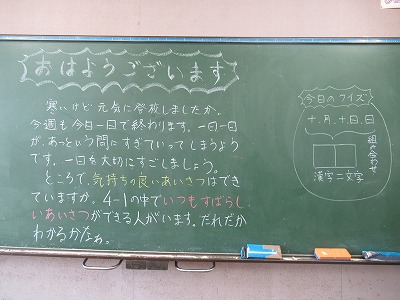 おはようございます
寒いけど元気に登校しましたか。
今週も今日一日で終わります。一日一日
が、あっという間にすぎていってしまうよう
です。一日を大切にすごしましょう。
ところで、気持ちの良いあいさつはでき
ていますか。4-1の中でいつもすばらし
いあいさつができる人がいます。だれだか
わかるかなぁ。
今日のクイズ
十、月、十、日、日
組み合わせ
漢字二文字